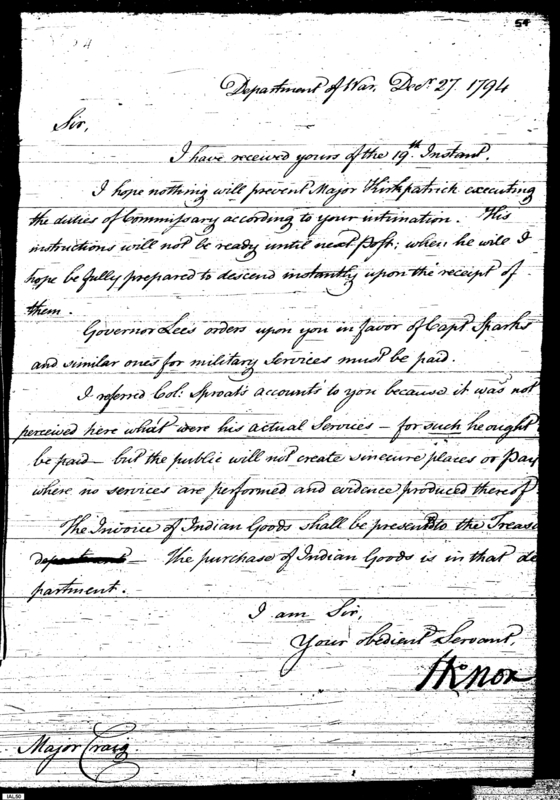 54
Department of War, Decr. 27. 1794
Sir,
I have received yours of the 19th Instant.
I hope nothing will prevent Major Kirkpatrick executing
the duties of Commissary according to your intimation. His
instructions will not be ready until next Post; when he will I
hope be fully prepared to descend instantly upon the receipt of
them.
Governor Lees orders upon you in favor of Capt Sparks
and similar ones for military services must be paid.
I referred Col: Sproat's accounts to you because it was not
perceived here what were his actual services — for such he ought
be paid — but the public will not create sinecure places or pay
where no services are performed and evidence produced thereof.
The Invoice of Indian Goods shall be presented to the Treasu
department — the purchase of Indian Goods is in that de
partment.
I am Sir,
Your obedient Servant,
HKnox
Major Craig
IAL50